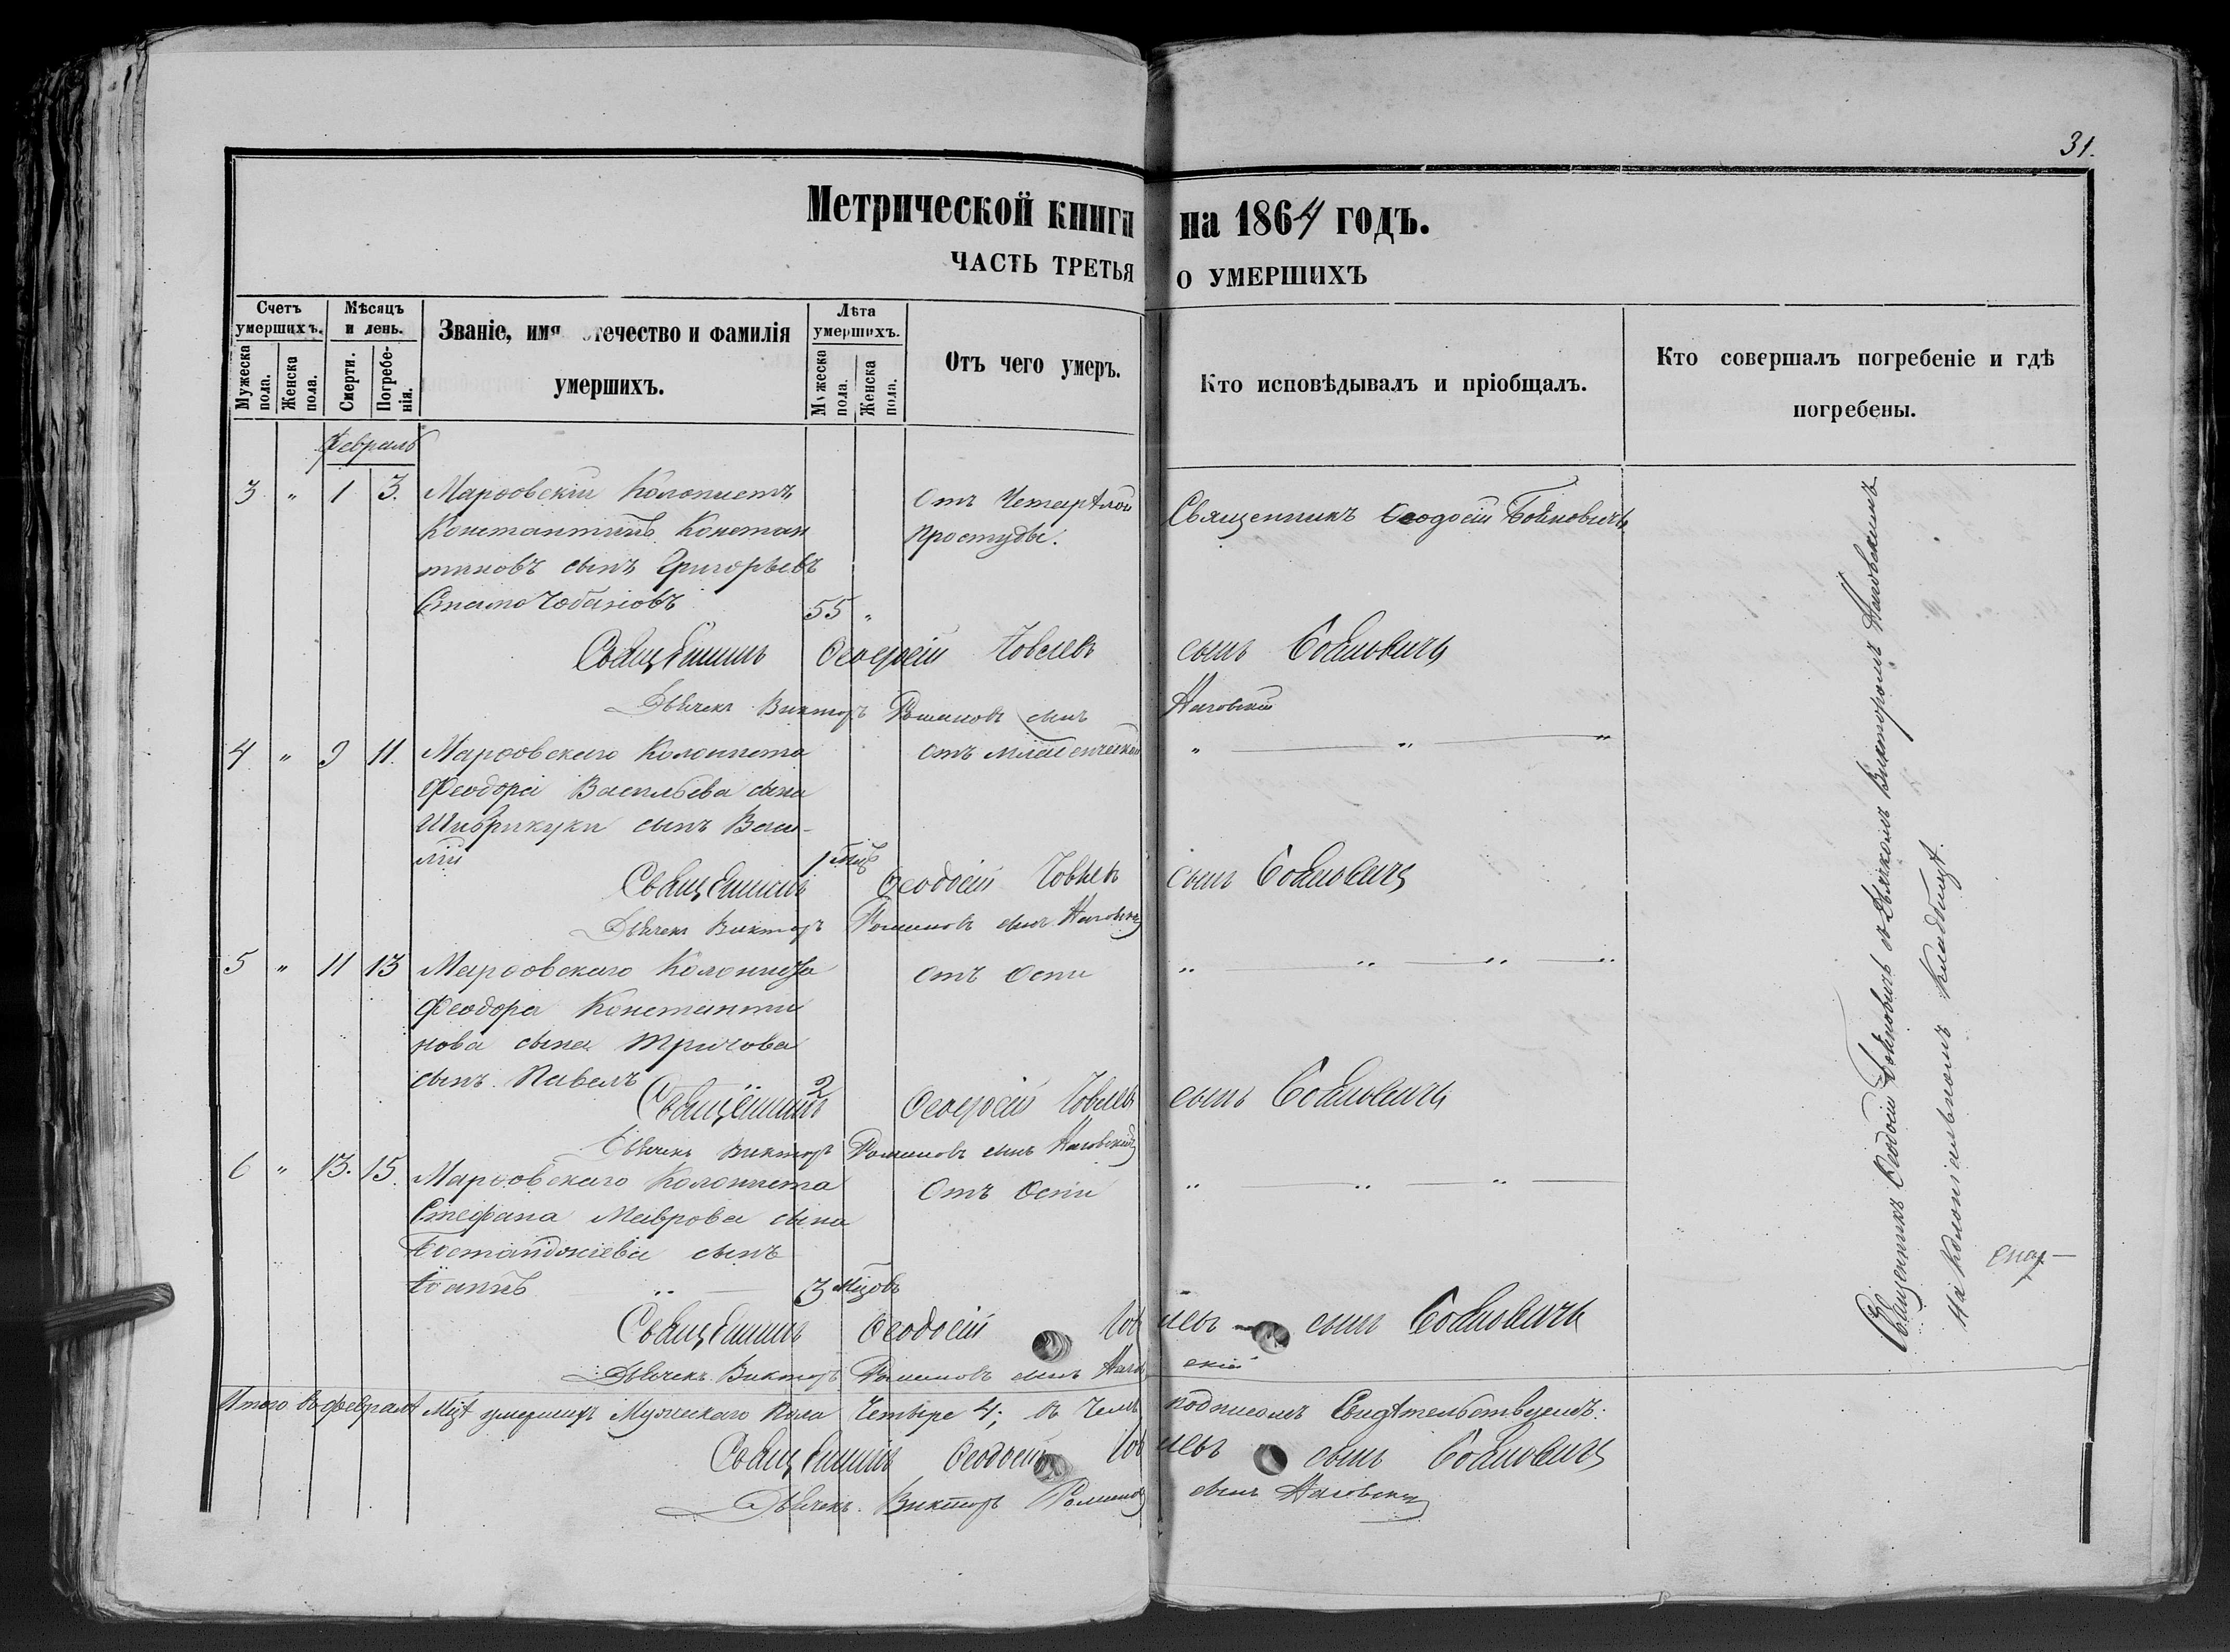 31.
Метрической книги на 1864 годъ.
ЧАСТЬ ТРЕТЬЯ О УМЕРШИХЪ
Счетъ умершихъ.
Мужеска пола.
Женска пола.
Мѣсяцъ и день.
Смерти.
Погребенія.
Званіе, имя отечество и фамилія умершихъ.
Лѣта умершихъ.
Мужеска пола.
Женска пола.
Отъ чего умеръ.
Кто исповѣдывалъ и пріобщалъ.
Кто совершалъ погребеніе и гдѣ погребены.
Февраль
3 " 1 3. Марѳовскій Колонистъ Отъ Священникъ Ѳеодосій Бойновичъ
Константинъ Констан Простуды.
тиновъ сынъ Григорьевъ
Стамо Чобановъ 55 "
Священникъ Ѳеодосій сынъ Бойновичъ
Дьячекъ Викторъ Романовъ сынъ Наговскій
4 " 9 11. Марѳовскаго Колониста отъ младенческой " " "
Феодора Васильева сына
сынъ Васи-
лій 1 мцъ
Священникъ Ѳеодосій сынъ Бойновичъ
Дьячекъ Викторъ Романовъ сынъ Наговскій
5 " 11 13 Марѳовскаго Колониста отъ Оспи " " " "
Феодора Константи
нова сына Тричова
сынъ Павелъ 2
Священникъ Ѳеодосій сынъ Бойновичъ
Дьячекъ Викторъ Романовъ сынъ Наговскій
6 " 13. 15. Марѳовскаго Колониста Отъ Оспи " " "
Стефана Маврова сына
Бостанджіева сынъ
Іоаннъ " 3 мцовъ
Священникъ Ѳеодосій сынъ Бойновичъ
Дьячекъ Викторъ Романовъ сынъ Наговскій
Итого въ февралѣ Мцѣ умершихъ Мужескаго Пола Четыре 4; въ чемъ подписомъ Свидѣтельствуемъ:
Священникъ Ѳеодосій сынъ Бойновичъ
Дьячекъ Викторъ Романовъ сынъ Наговскій
Священникъ Ѳеодосій Бойновичъ съ Дьячкомъ Викторомъ Наговскимъ
На Колоніальномъ Кладбищѣ.